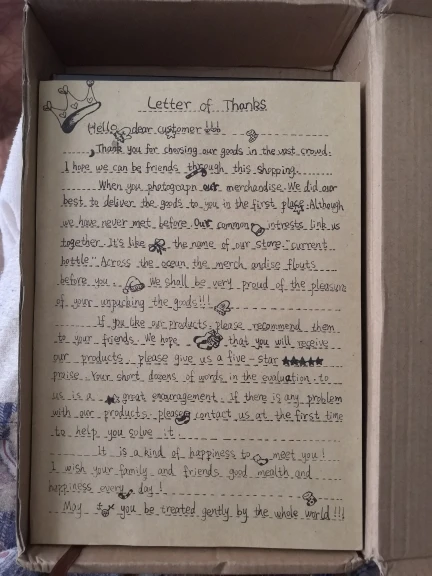 Letter of Thanks
Hello dear customer !!!
Thank you for choosing our goods in the vast crowd.
I hope we can be friends through this shopping.
When you photograph our merchandise. We did our
best to deliver the goods to you in the first place. Although
we have never met before. Our common intrests link us
together. It's like the name of our store. "current
bottle." Across the ocean the merch andise flouts
before you. We shall be very proud of the pleasure
of your unpacking the goods!!!
If you like our products. please recommend them
to your friends. We hope that you will receive
our products. please give us a five-star ★★★★★
praise. Your short dozens of words in the evaluation to
us is a great encouragement. If there is any problem
with our products. please contact us at the first time
to help you solve it.
It is a kind of happiness to meet you!
I wish your family and friends good mealth and
happiness every day!
May you be treated gently by the whole world!!!